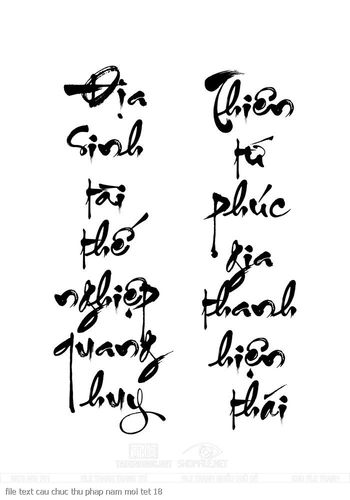 Địa
sinh
tài
thế
nghiệp
quang
huy
Thiên
tứ
phúc
gia
thanh
hiện
thái
SHOPFILE.NET
file text cau chuc thu phap nam moi tet 18